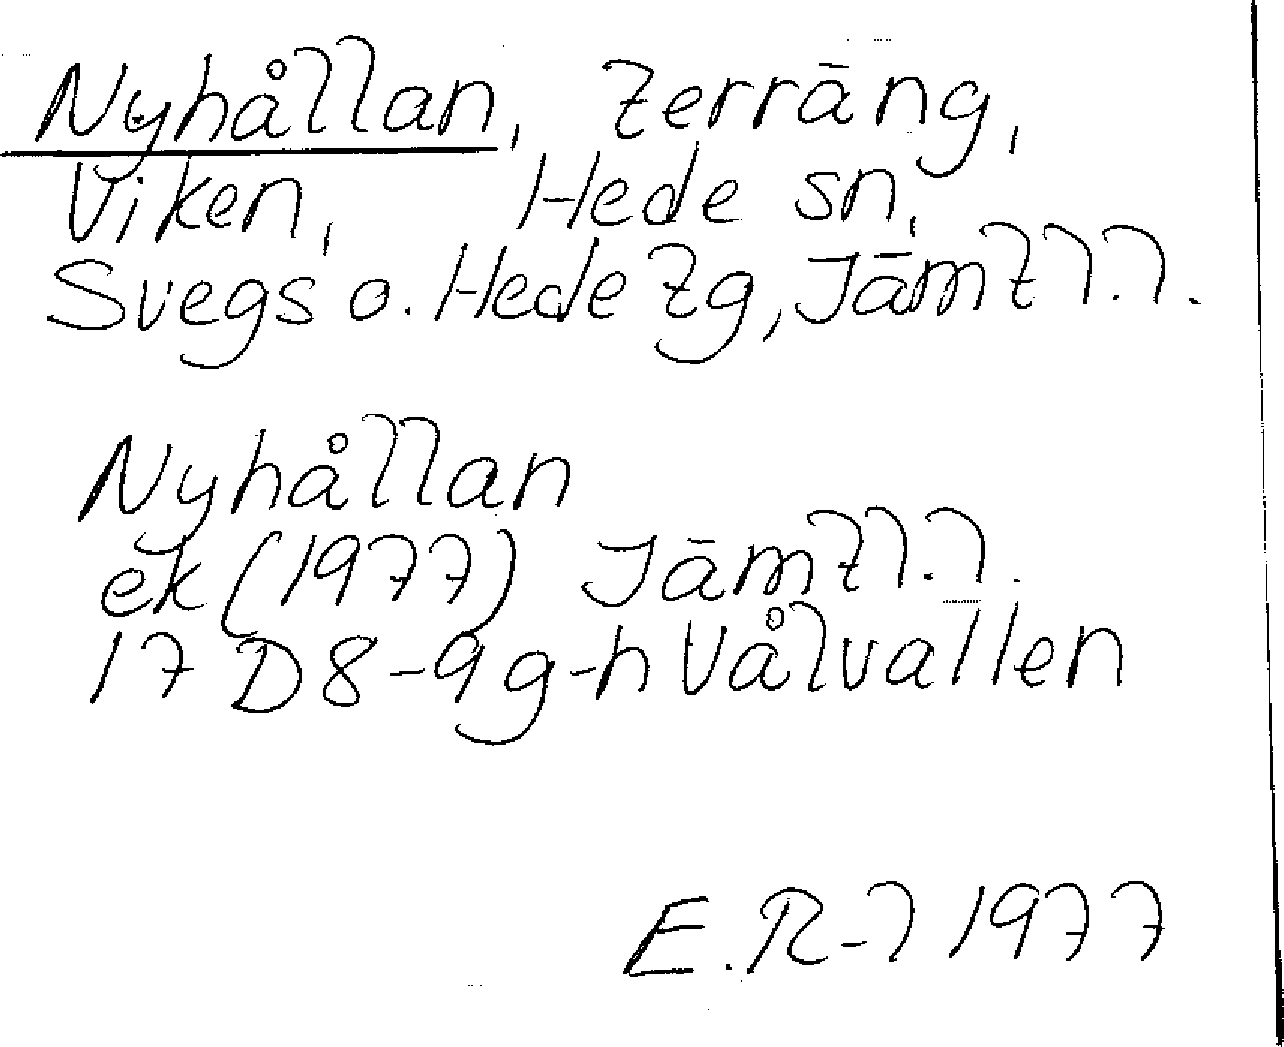 Nyhållan, terräng,
Viken, Hede sn,
Svegs o. Hede tg, Jämtl.l.
Nyhållan
ek (1977) Jämtl.l.
17 D 8-9 g-h Vålvallen
E. R-l 1977